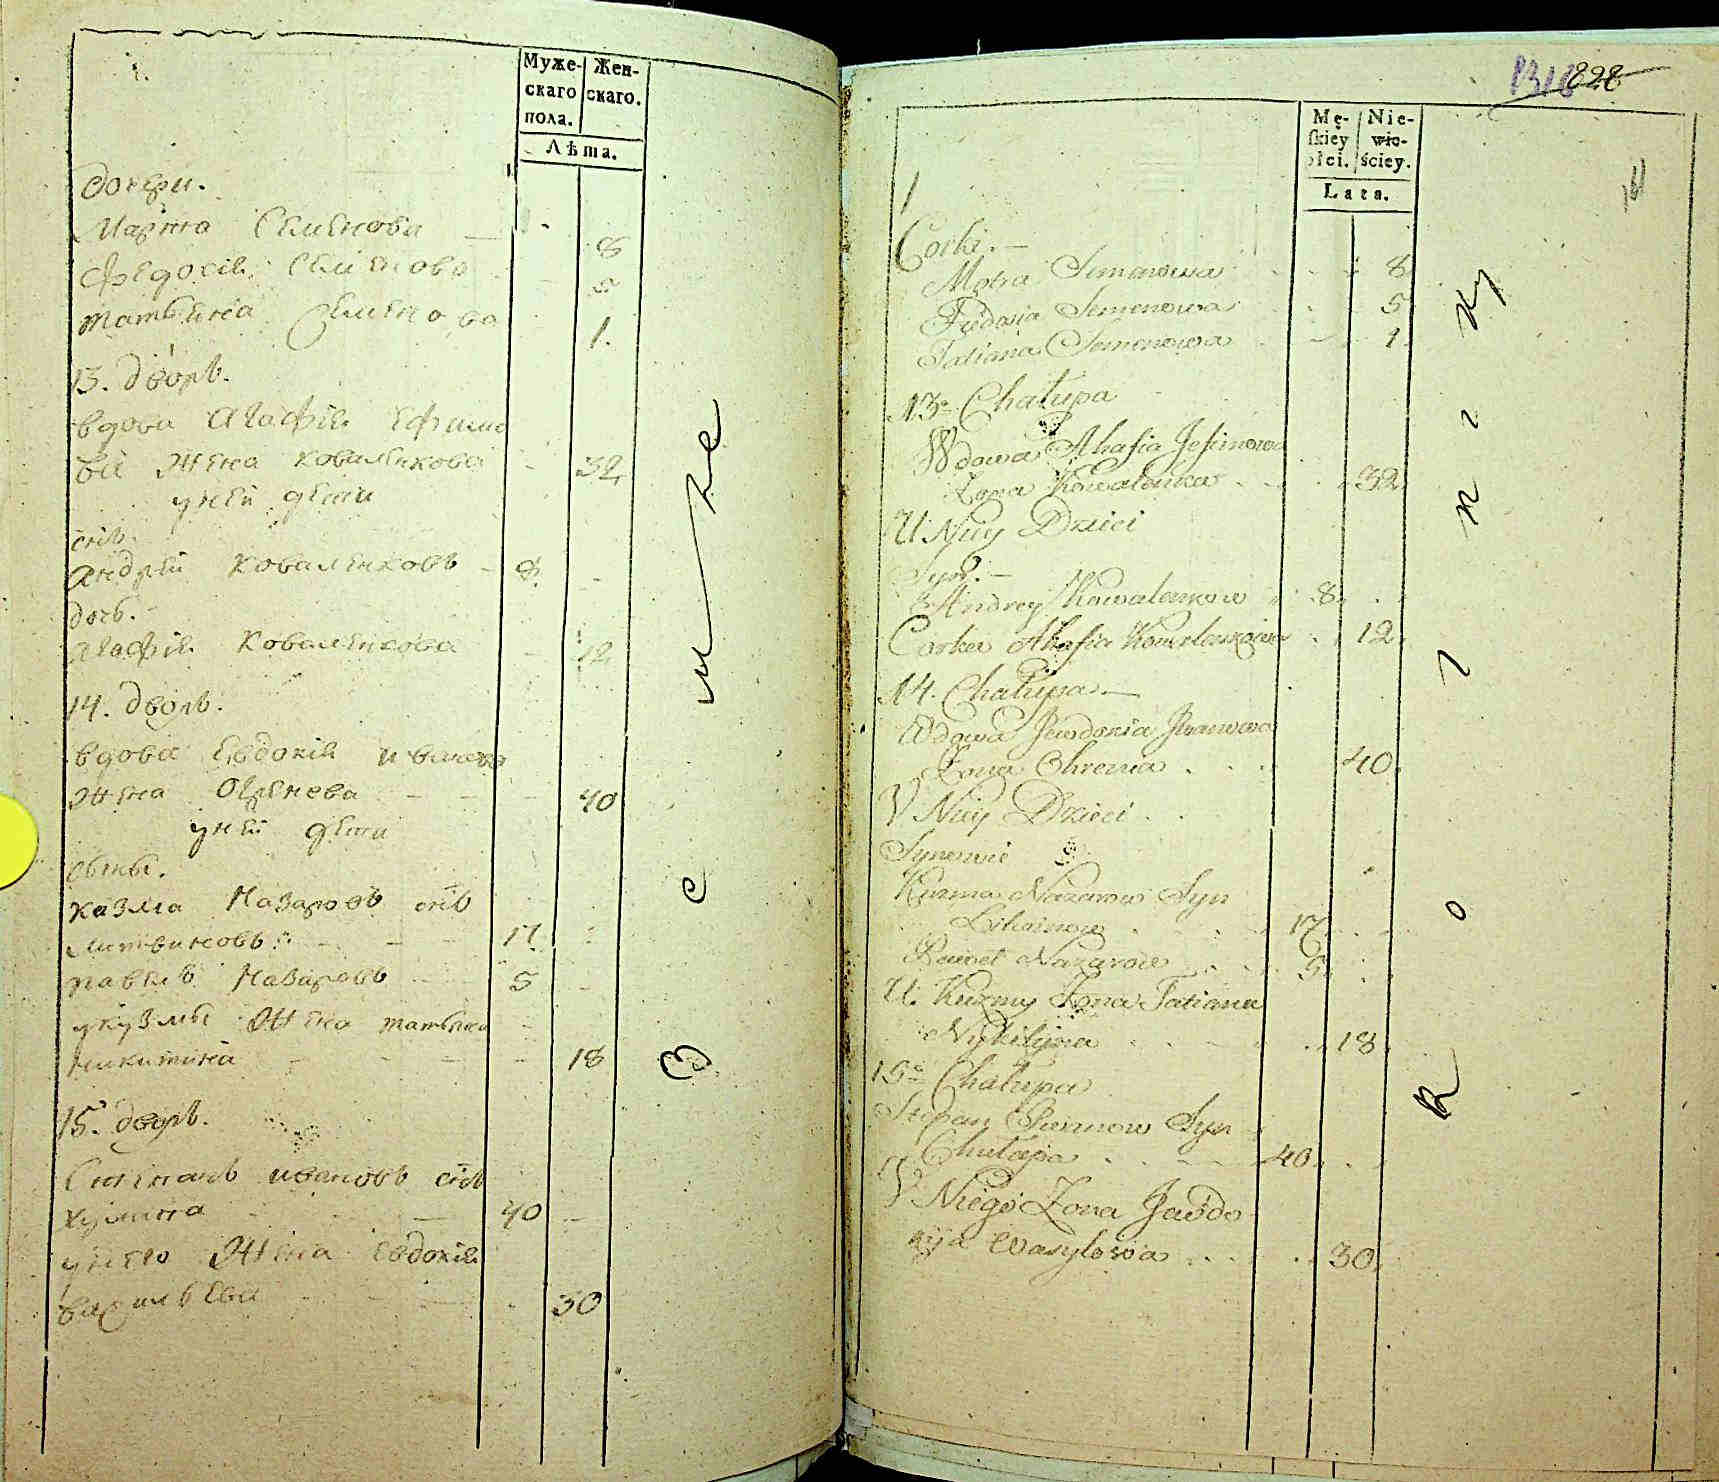 Муже-
скаго
пола.
Жен-
скаго.
Лѣта.
дочери.
Марѳа Семенова 8
Федосія Семенова 5
татьяна Семенова 1.
13. дворъ.
вдова Агафія Ефимо
ва жена коваленкова 32
унеи дети
снъ.
андрей коваленковъ 8
дочь.
агафія коваленкова 12
14. дворъ.
вдова Евдокія иванова
жена Охремова 40
уней дети
сыны.
казма Назаровъ снъ
литвиновъ 17
павелъ Назаровъ 5
укузмы жена татьяна
никитина 18
15. дворъ.
Степанъ ивановъ снъ
40
унего жена евдокія
васильева 30
1316 828
Mę-
skiey
płci.
Nie-
wie-
ściey.
Lata.
Corki.
Motra Semenowa 8
Fedosia Semenowa 5
Tatiana Semenowa 1
13. Chałupa
Wdowa Ahafia Jefimowa
Zona Kowalenka 32
U Niey Dzieci
Syn.
Andrey Kowalenkow 8
Corka Ahafia Kowalenkowa 12
14. Chałupa
Wdowa Jewdokia Iwanowa
Zona Ohrema 40
U Niey Dzieci
Synowie
Kuzma Nazarow Syn
Litwinow 17
Paweł Nazarow 5
U Kuzmy Zona Tatiana
Nikitijna 18
15. Chałupa
Stepan Iwanow Syn
40
U Niego Zona Jawdo
kija Wasylowa 30